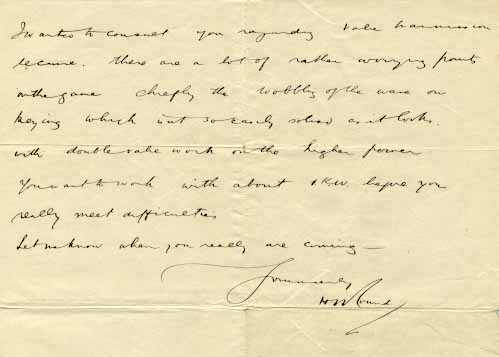 I wanted to consult you regarding Valve transmission
because. there are a lot of rather worrying points
in the game chiefly the wobbling of the wave on
Keying which isnt so easily solved as it looks.
with double valve work on the higher power
You want to work with about 1 K.W. before you
really meet difficulties
Let me know when you really are coming —
Yours sincerely
H J Round